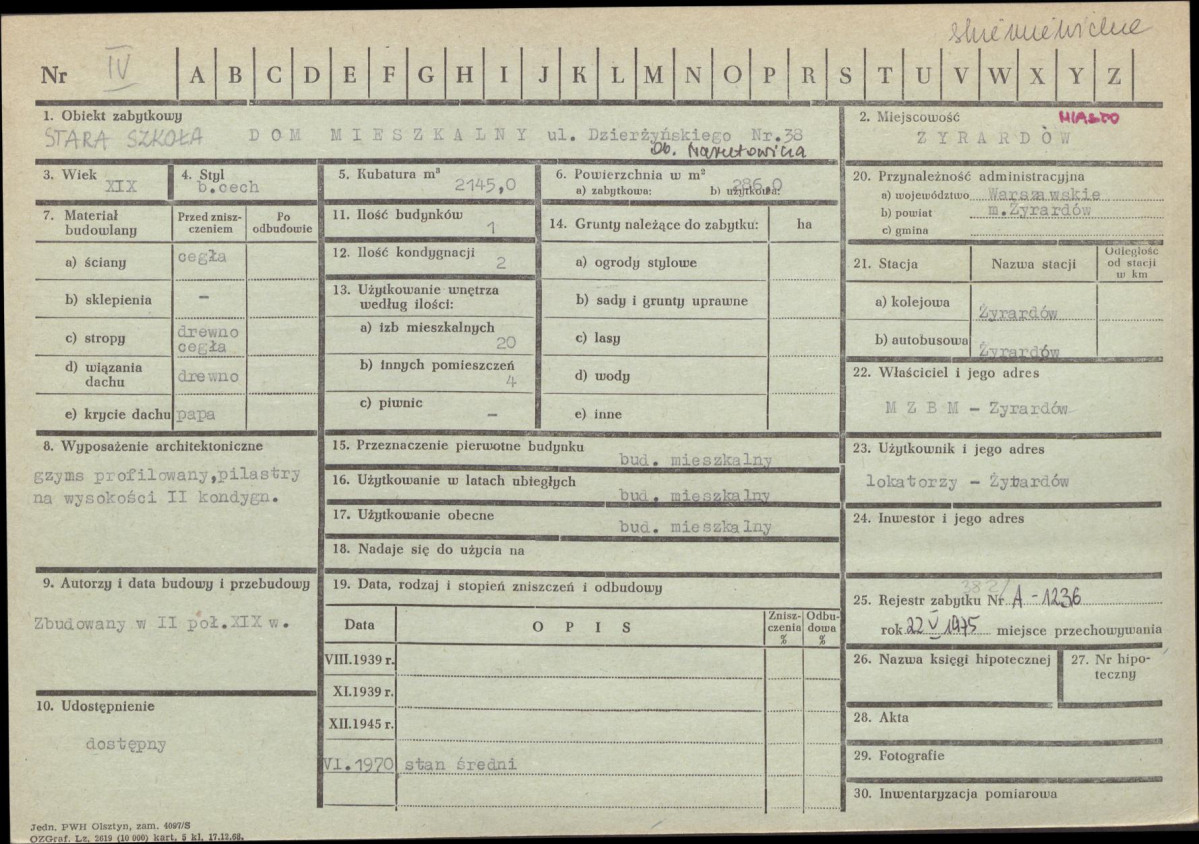 skierniewickie
Nr IV A B C D E F G H I J K L M N O P R S T U V W X Y Z
1. Obiekt zabytkowy
STARA SZKOŁA D O M M I E S Z K A L N Y ul. Dzierżyńskiego Nr.38
Ob. Narutowicza
2. Miejscowość MIASTO
Z Y R A R D Ó W
3. Wiek
XIX
4. Styl
b.cech
5. Kubatura m³
2145,0
6. Powierzchnia w m²
a) zabytkowa: b) użytkowa:
286,0
20. Przynależność administracyjna
a) województwo Warszawskie
b) powiat m.Żyrardów
c) gmina
7. Materiał budowlany
Przed zniszczeniem
Po odbudowie
a) ściany cegła
b) sklepienia –
c) stropy drewno
cegła
d) wiązania dachu drewno
e) krycie dachu papa
11. Ilość budynków
1
12. Ilość kondygnacji
2
13. Użytkowanie wnętrza
według ilości:
a) izb mieszkalnych
20
b) innych pomieszczeń
4
c) piwnic
–
14. Grunty należące do zabytku: ha
a) ogrody stylowe
b) sady i grunty uprawne
c) lasy
d) wody
e) inne
21. Stacja Nazwa stacji Odległość
od stacji
w km
a) kolejowa
Żyrardów
b) autobusowa
Żyrardów
22. Właściciel i jego adres
M Z B M – Żyrardów
8. Wyposażenie architektoniczne
gzyms profilowany,pilastry
na wysokości II kondygn.
15. Przeznaczenie pierwotne budynku
bud. mieszkalny
16. Użytkowanie w latach ubiegłych
bud. mieszkalny
17. Użytkowanie obecne
bud. mieszkalny
18. Nadaje się do użycia na
23. Użytkownik i jego adres
lokatorzy – Żyrardów
24. Inwestor i jego adres
9. Autorzy i data budowy i przebudowy
Zbudowany w II poł.XIX w.
10. Udostępnienie
dostępny
19. Data, rodzaj i stopień zniszczeń i odbudowy
Data O P I S Zniszczenia % Odbudowa %
VIII.1939 r.
XI.1939 r.
XII.1945 r.
VI.1970 stan średni
382/
25. Rejestr zabytku Nr A-1236
rok 22 V 1975 miejsce przechowywania
26. Nazwa księgi hipotecznej
27. Nr hipoteczny
28. Akta
29. Fotografie
30. Inwentaryzacja pomiarowa
Jedn. PWH Olsztyn, zam. 4097/S
OZGraf. Lz. 2619 (10 000) kart. 5 kl. 17.12.68.